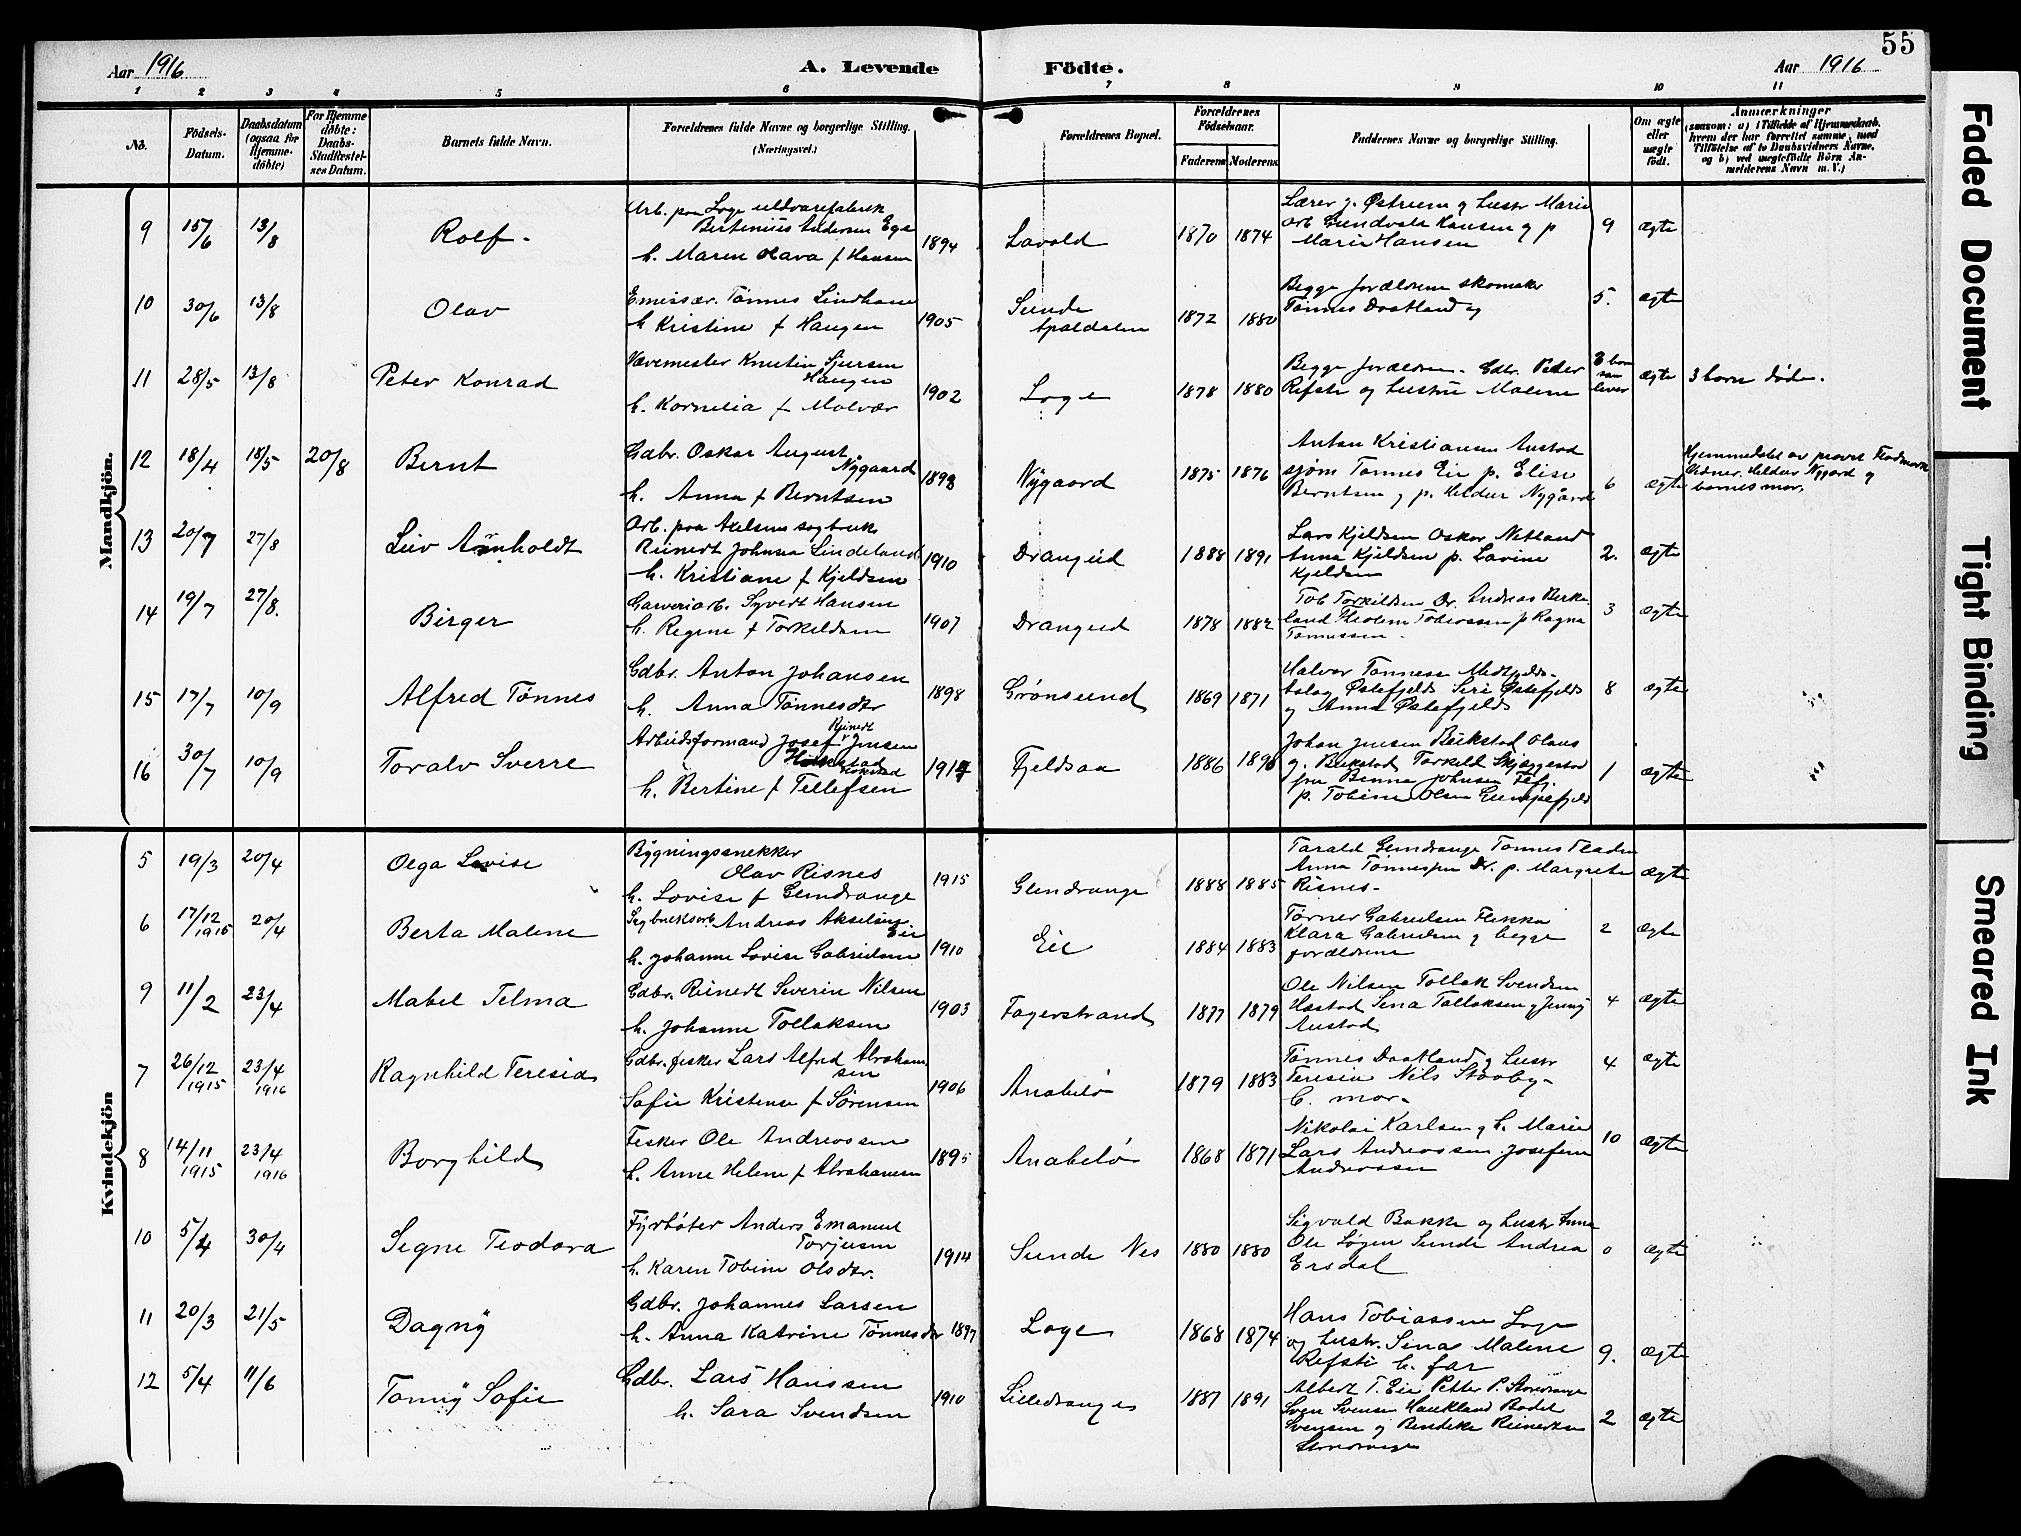 55
Aar 1916 A. Levende Födte. Aar 1916
1 2 3 4 5 6 7 8 9 10 11
No.
Födsels-
Datum.
Daabsdatum
(ogsaa for
Hjemme-
döbte)
For Hjemme
döbte:
Daabs-
Stadfestel-
ses Datum.
Barnets fulde Navn.
Forældrenes fulde Navne og borgerlige Stilling.
(Næringsvei.)
Forældrenes Bopæl.
Forældrenes
Födselsaar.
Faderens Moderens
Faddernes Navne og borgerlige Stilling.
Om ægte
eller
uægte
födt.
Anmærkninger
(saasom: a) i Tilfælde af Hjemmedaab,
hvem der har forrettet samme, med
Tilföielse af to Daabsvidners Navne,
og b) ved uægtefödte Börn An-
melderens Navn m. V.)
Mandkjön.
9 15/6 13/8 Rolf.
Arb. paa Loge uldvarefabrik
Bertinius Andersen Ege
h. Maren Olava f Hansen 1894
Lavold 1870 1874
Lærer J. Østrem og hustr Marie
arb Gundvald Hansen og p
Marie Hansen
9 ægte
10 30/6 13/8 Olav
Emissær. Tønnes Lindhane
h Kristine f Haugen 1905
Sunde
Apaldalen 1872 1880
Begge forældrene skomaker
Tønnes Daatland og
5. ægte
11 28/5 13/8 Peter Konrad
Vævemester Knutin Sjursen
Haugen
h. Kornelia f Molvær 1902
Loge 1878 1880
Begge forældren. Gdbr. Peter
Refsti og hustru Malene
3 born
som
lever
ægte 3 born døde.
12 18/4 18/5 20/8 Bernt
Gdbr. Oskar August
Nygaard
h. Anna f Berntsen 1898
Nÿgaard 1875 1876
Anton Kristiansen Austad
sjøm Tønnes Eie p. Elise
Berntsen og p. Heldur Nygård
6 ægte
Hjemmedøbt av provst Flodmark
Vidner. Heldur Nygård og
barnets mor.
13 20/7 27/8 Leiv Arnholdt
Arb. paa Axelsens sagbruk
Reinert Johnsen Lindeland
h. Kristiane f Kjeldsen 1910
Drangeid 1888 1891
Lars Kjeldsen Oskar Netland
Anna Kjeldsen p. Lavine
Kjeldsen
2. ægte
14 19/7 27/8. Birger
Garveriarb. Syvert Hansen
h. Regine f Torkildsen 1907
Drangeid 1878 1882
Tob Torkildsen Dr. Andreas Birke
land Teoline Tobiassen p Ragna
Tønnessen
3 ægte
15 17/7 10/9 Alfred Tønnes
Gdbr. Anton Johansen
h. Anna Tønnesdtr 1898
Grønsund 1869 1871
Halvor Tønnesen
Østefjeld Siri Østefjeld
og Anna Østefjeld
8 ægte
16 30/7 10/9 Toralv Sverre
Reinert
Arbeidsformand Josef Jensen
h. Bertine f Tellefsen 1914
Fjeldsaa 1886
Johan Jensen Birkstad Olaus
g. Birkstad Torkild Skjæggestad
fru Benne Johnsen Fej.
p. Tobine Olsen Gumpefjeld
1 ægte
Kvindekjön
5 19/3 20/4 Olga Lovise
Bÿgningssnekker
Olav Risnes
h. Lovise f Glendrange 1915
Glendrange 1888 1885
Tarald Glendrange Tønnes Fladen
Anna Tønnessen Dr. p. Margrete
Risnes
ægte
6 17/12 1915 20/4 Berta Malene
Sagbruksarb. Andreas Akselsen
Eie
h. Johanne Lovise Gabrielsen 1910
Eie 1884 1883
Tørner Gabrielsen Flikka
Klara Gabrielsen og begge
forældrene
2 ægte
9 11/2 23/4 Mabel Telma
Gdbr. Reinert Severin Nilsen
h. Johanne Tollaksen 1903
Fagerstrand 1877 1879
Ole Nilsen Tollak Svendsen
Hæstad Sina Tallaksen og Jenny
Austad
4 ægte
7 26/12 1915 23/4 1916 Ragnhild Teresia
Gdbr. fisker Lars Alfred Abraham
sen
Sofie Kristense f Sørensen 1906
Anabeløi 1879 1883
Tønnes Daatland og hustr
Teresia Nils Staaby
b. mor.
4 ægte
8 14/11 1915 23/4 1916 Borghild
Fisker Ole Andreassen
h. Anne Helene f Abrahamsen 1895
Anabelø 1868 1871
Nikolai Karlsen og h. Marie
Lars Andreassen Josefine
Andreassen
10 ægte
10 5/4 30/4 Signe Teodora
Fÿrbøter Anders Emanuel
Torjusen
h. Karen Tobine Olsdtr. 1914
Sunde Nes 1880 1880
Sigvald Bakke og hustr Anna
Ole Løgen Sunde Andrea
Ersdal
0 ægte
11 20/3 21/5 Dagnÿ
Gdbr. Johannes Larsen
h. Anna Katrine Tønnesdtr 1897
Loge 1868 1874
Hans Tobiassen Loge
og hustr. Sina Malene
Refsti b. far
9. ægte
12 5/4 11/6 Tonnÿ Sofie
Gdbr. Lars Hanssen
h. Sara Svendsen 1910
Lilledrange 1887 1891
Albert T. Eie Petter P. Stordrange
Sven Svensen Haukland Bodel
Svensen og Bendikte Reinertsen
Stordrange
2 ægte
Faded Document
Tight Binding
Smeared Ink